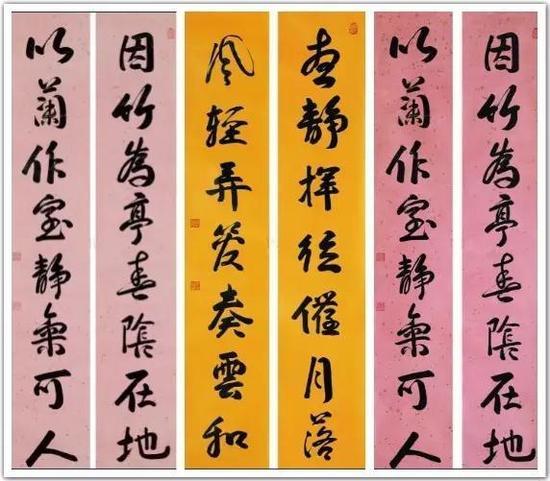 因竹為亭春陰在地
以蘭作室靜氣可人
夜靜揮弦催月落
風輕弄管奏雲和
因竹為亭春陰在地
以蘭作室靜氣可人